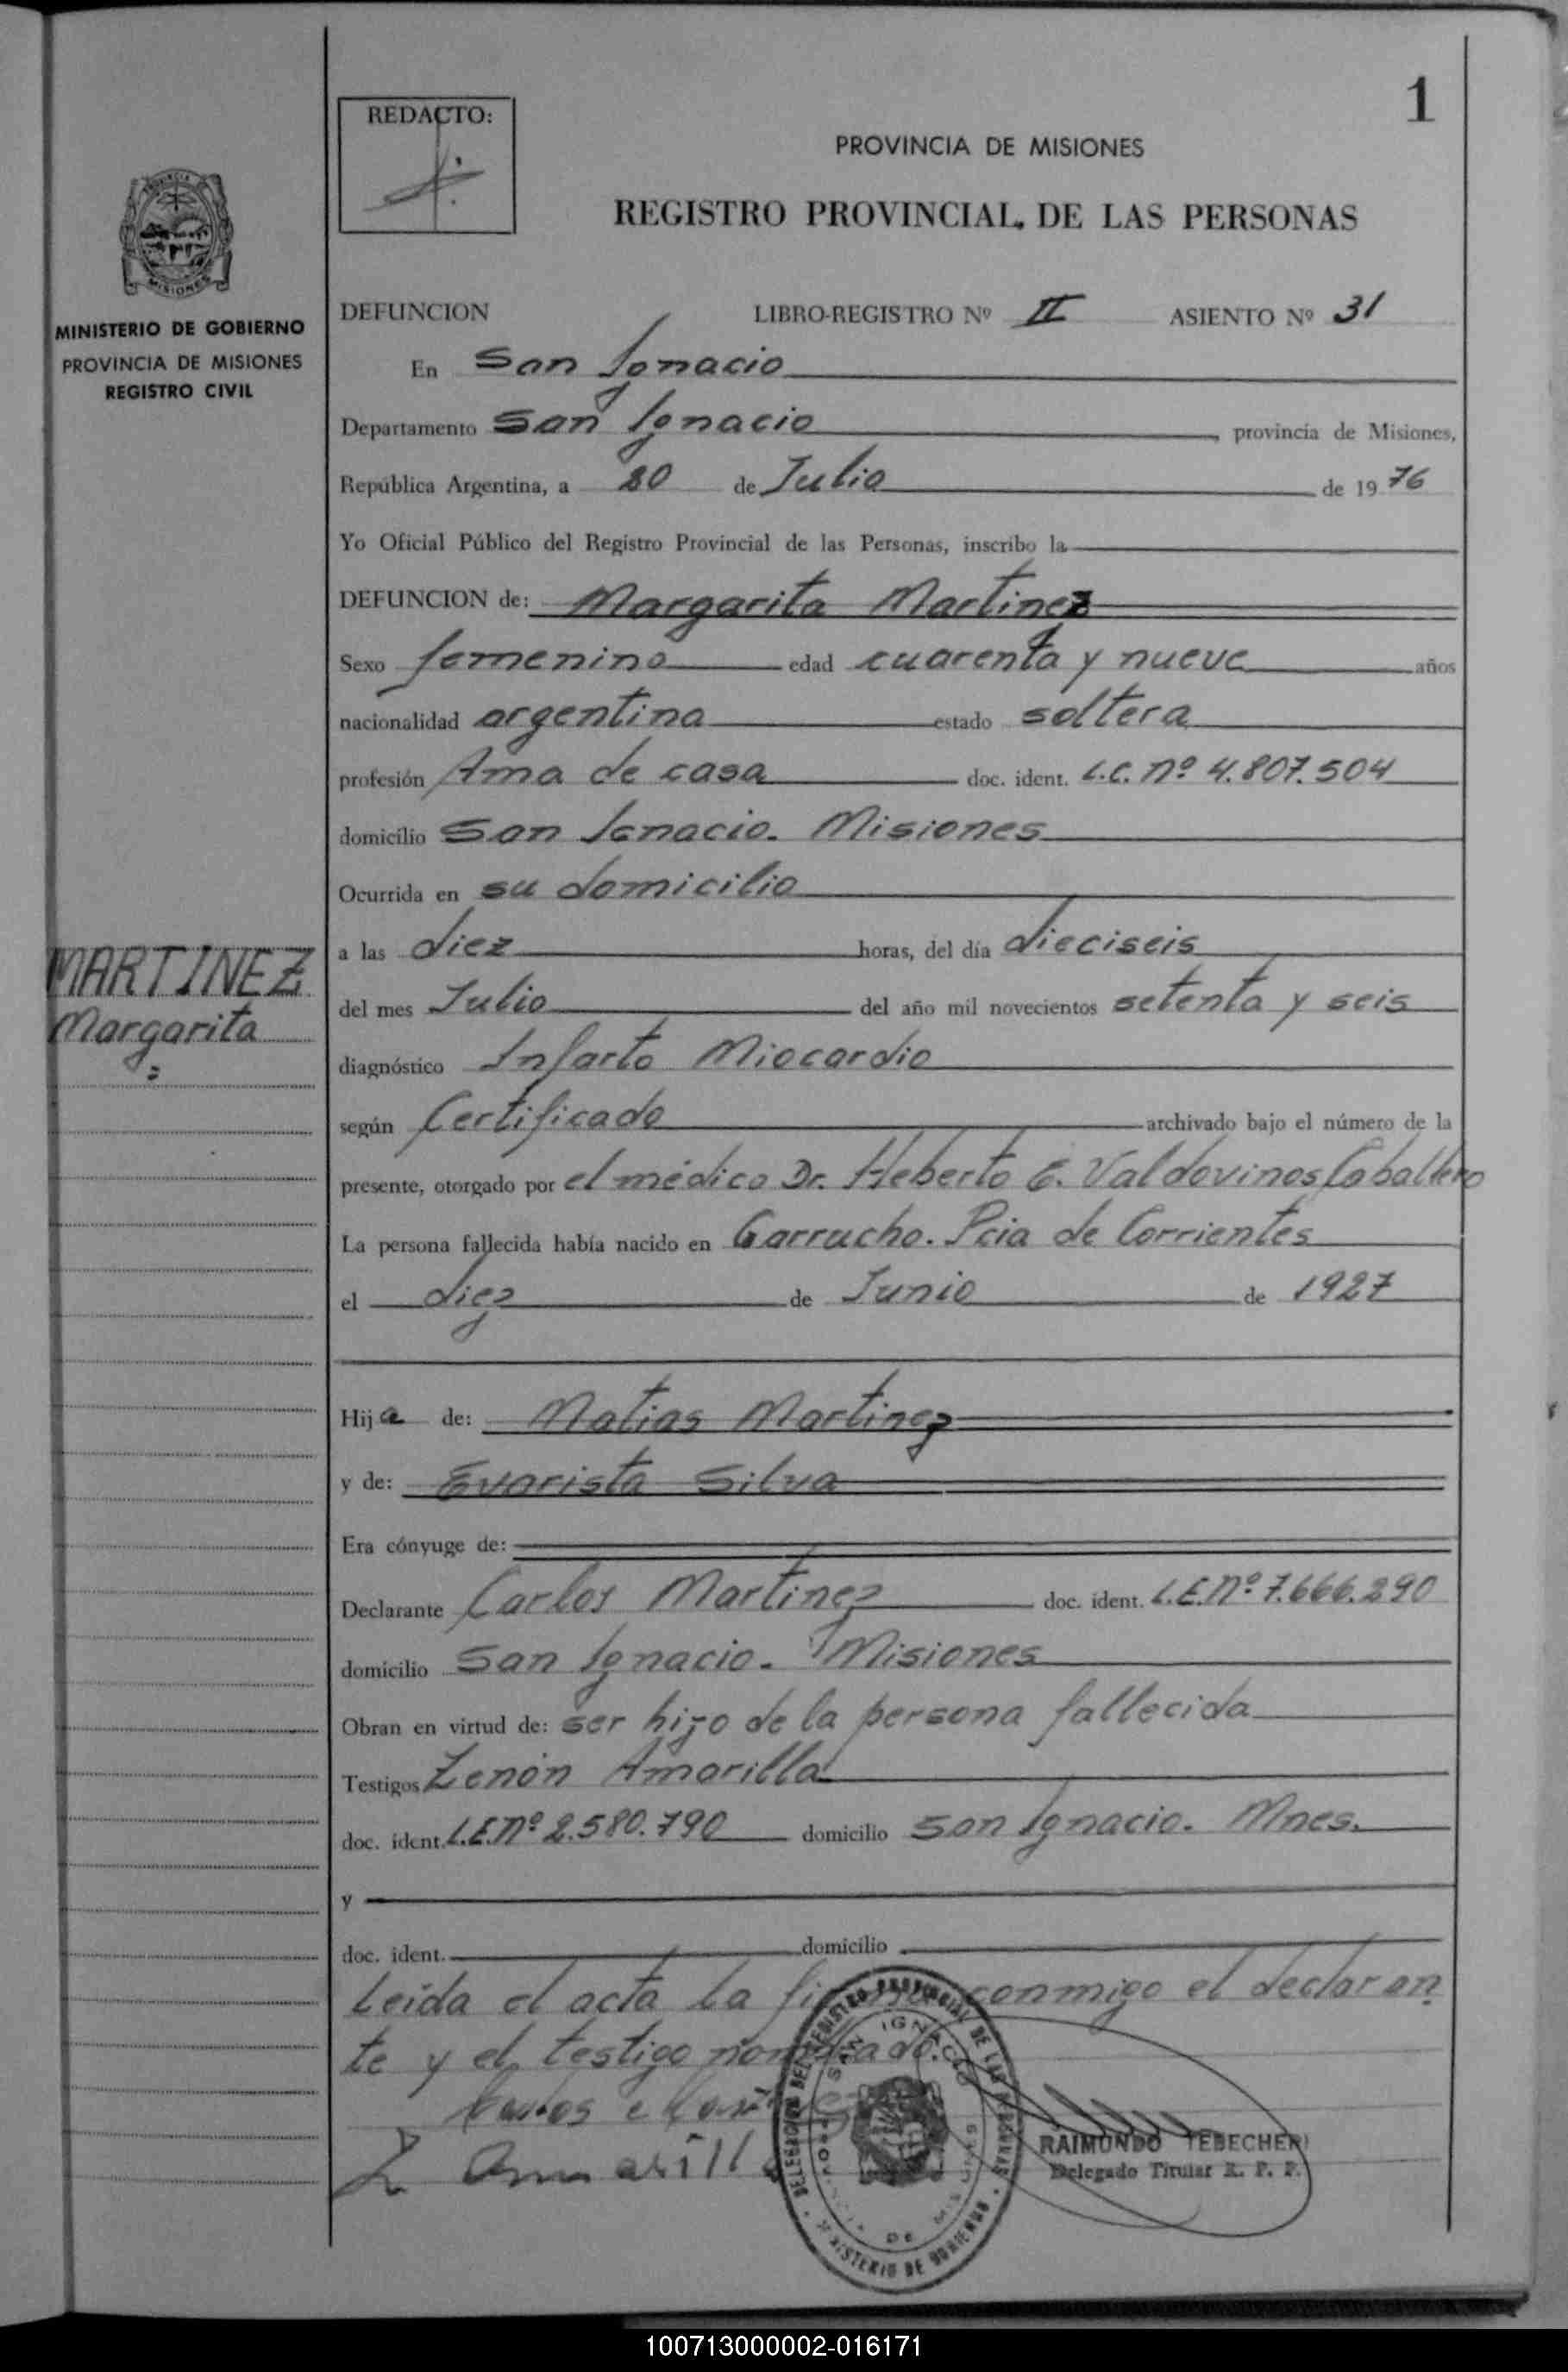 1
REDACTO:
PROVINCIA DE MISIONES
REGISTRO PROVINCIAL DE LAS PERSONAS
MISIONES
MINISTERIO DE GOBIERNO
PROVINCIA DE MISIONES
REGISTRO CIVIL
MARTINEZ
Margarita
DEFUNCION LIBRO-REGISTRO Nº II ASIENTO Nº 31
En San Ignacio
Departamento San Ignacio, provincia de Misiones,
República Argentina, a 20 de Julio de 1976
Yo Oficial Público del Registro Provincial de las Personas, inscribo la
DEFUNCION de: Margarita Martinez
Sexo femenino edad cuarenta y nueve años
nacionalidad argentina estado soltera
profesión Ama de casa doc. ident. L.C. nº 4.807.504
domicilio San Ignacio. Misiones
Ocurrida en su domicilio
a las diez horas, del día dieciseis
del mes Julio del año mil novecientos setenta y seis
diagnóstico Infarto Miocardio
según Certificado archivado bajo el número de la
presente, otorgado por el médico Dr. Heberto G. Valdovinos Caballero
La persona fallecida había nacido en Garrucho. Pcia de Corrientes
el diez de Junio de 1927
Hija de: Matias Martinez
y de: Evarista Silva
Era cónyuge de:
Declarante Carlos Martinez doc. ident. L.E.nº 7.666.290
domicilio San Ignacio. Misiones
Obran en virtud de: ser hijo de la persona fallecida
Testigos Zenón Amarilla
doc. ident. L.E.nº 2.580.790 domicilio San Ignacio. Mnes.
y
doc. ident. domicilio
Leida el acta la conmigo el declaran
te y el testigo nombrado.
Z Amarilla
DELEGACION DEL REGISTRO PROVINCIAL DE LAS PERSONAS
SAN IGNACIO
PROVINCIA DE MISIONES
MINISTERIO DE GOBIERNO
RAIMUNDO TEBECHERI
Delegado Titular R. P. P.
100713000002-016171